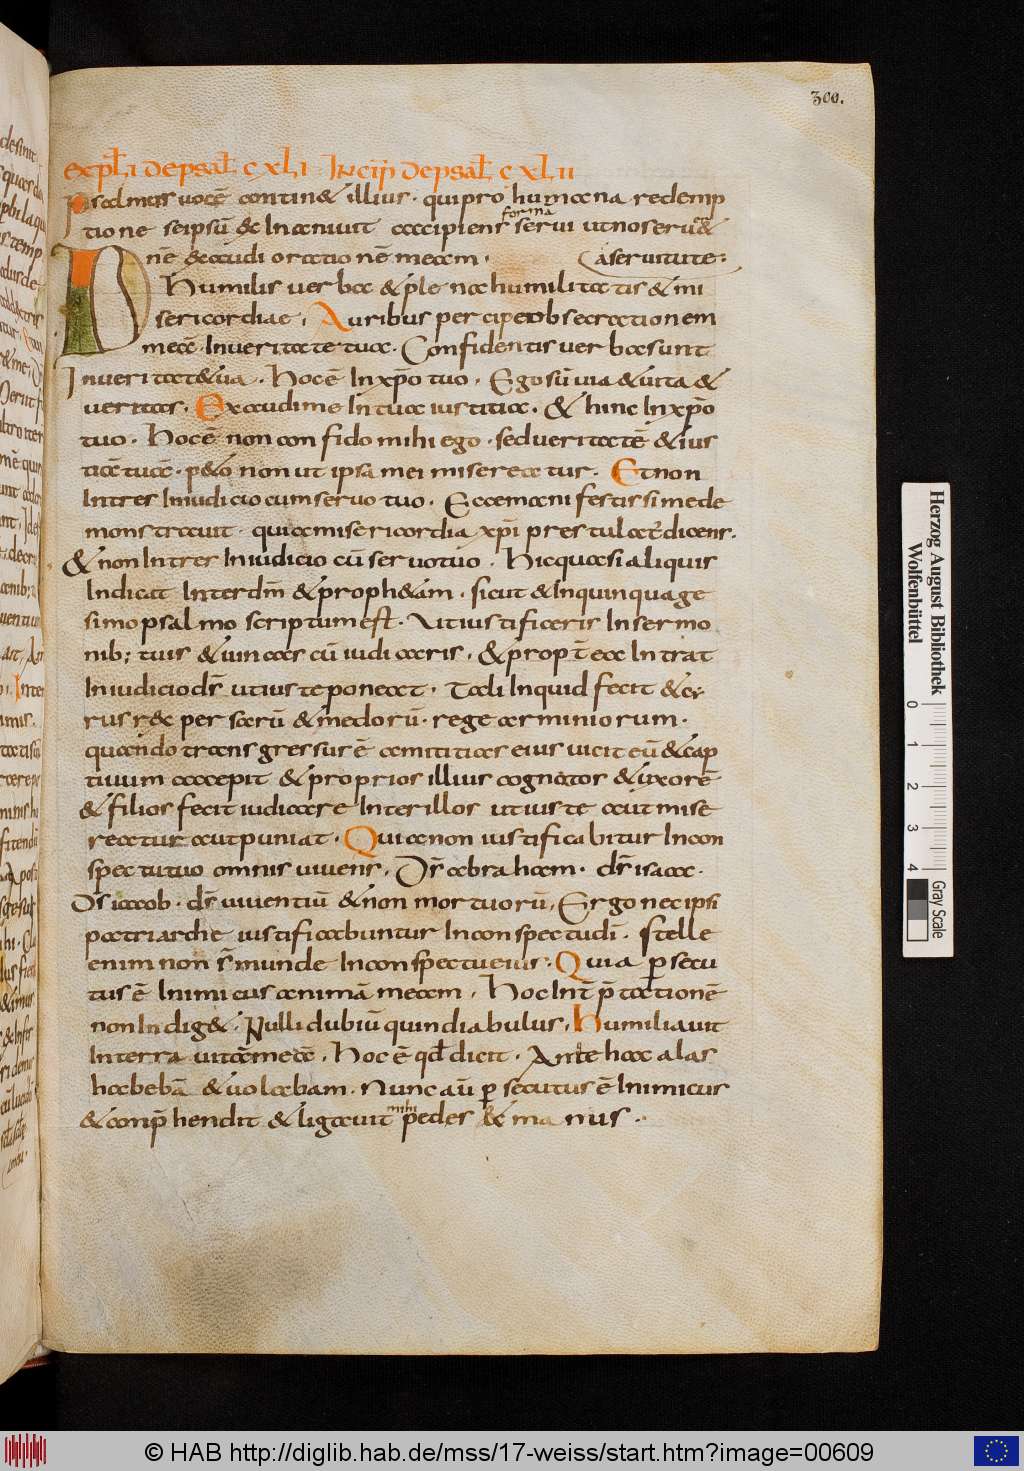 300.
expl̄i depsal̄ cxli · Incip̄ depsal̄ cxlii
Psalmus vocē contin& illius · qui pro humana redemp
tione seipsū & Inanivit accipiens forma servi ut nos eru&
nē exaudi orationē meam · a servitute ·
Humilis verba & plena humilitatis & mi
sericordiae , Auribus percipe obsecrationem
meā · In veritate tua · Confidentis verba sunt
In veritat& ua . Hoc ē In xp̄o tuo . Ego sū via & vita &
veritas . Exaudi me In tua iustitia . & hinc In xp̄o
tuo . Hoc ē non confido mihi ego · sed veritatē & ius
ticiā tuā · p&o non ut ipsa mei misereatur . Et non
Intres In iudicio cum servo tuo . Ecce manifestissime de
monstravit · quia misericordia xp̄i prestulat̄ dicens ·
& non Intres In iudicio cū servo tuo . Hic quasi aliquis
Indicat Interdm̄ & proph&am . sicut & In quinquage
simo psalmo scriptum est · Ut iustificeris In sermo
nib; tuis & vincas cū iudicaris . & propt̄ea Intrat
In iudicio ds̄ ut iuste poneat . Tali Inquid fecit & ci
rus rex persarū & medorū · rege arminiorum ·
quando transgressus ē amititias eius vicit eū & cap
tivum accepit & proprios illius cognatos & uxorē
& filios fecit iudicare Inter illos ut iuste aut mise
reatur aut puniat · Quia non iustificabitur In con
spectu tuo omnis vivens . Ds̄ abraham · ds̄ isaac ·
Ds̄ iacob · ds̄ viventiū & non mortuorū . Ergo nec ipsi
patriarche iustificabuntur In conspectu dī . Stelle
enim non s̄ munde In conspectu eius · Quia p̄secu
tus ē Inimicus animā meam . Hoc Int̄p̄tationē
non Indig& . Nulli dubiū quin diabulus . Humiliavit
In terra vitā meā . Hoc ē qd̄ dicit . Ante hac alas
habebā & volabam . Nunc aū p̄secutus ē Inimicus
& conp̄hendit & ligavit mihi pedes & manus ·
Herzog August Bibliothek
Wolfenbüttel
0 1 2 3 4
Gray Scale
© HAB http://diglib.hab.de/mss/17-weiss/start.htm?image=00609